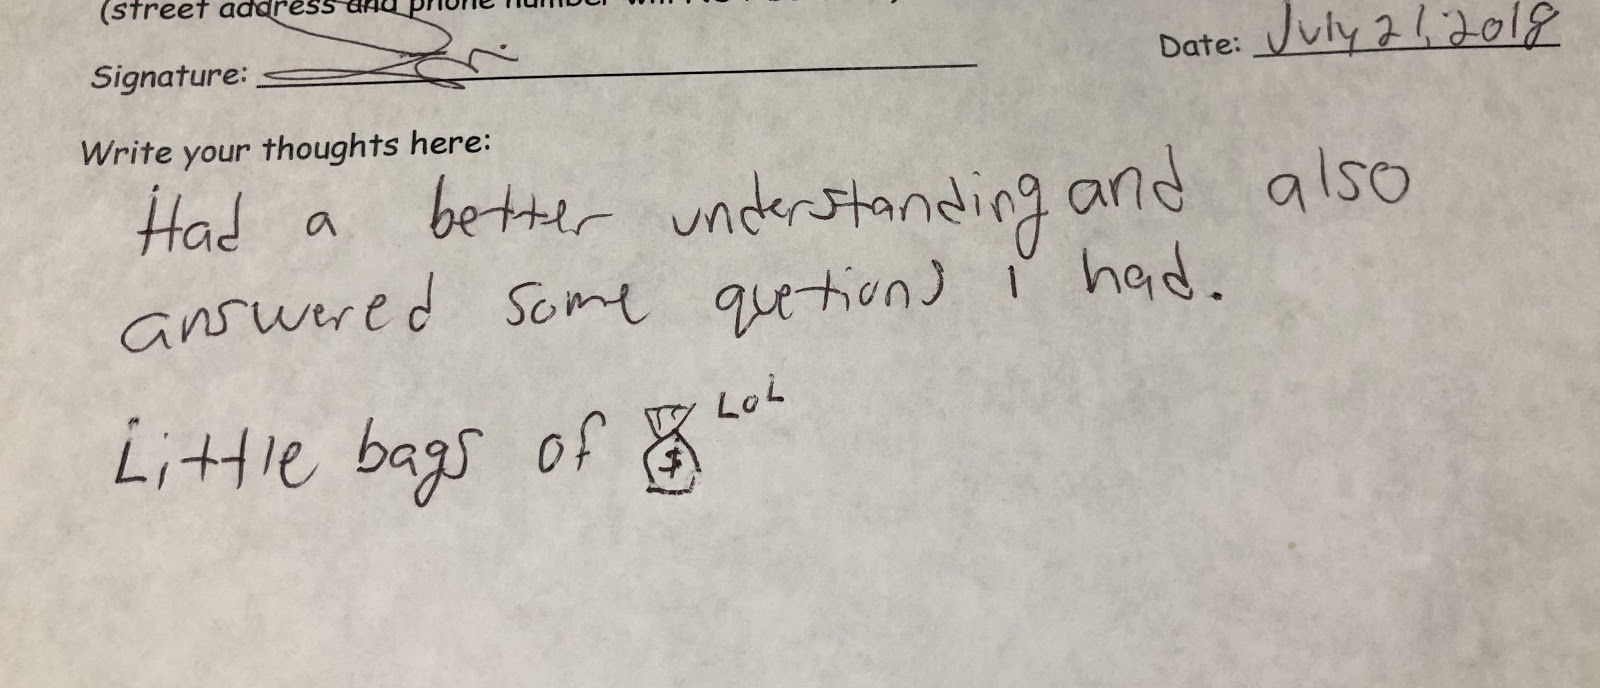 (street address and phone number
Date: July 21, 2018
Signature:
Write your thoughts here:
Had a better understanding and also
answered some quetions I had.
Little bags of $ LOL